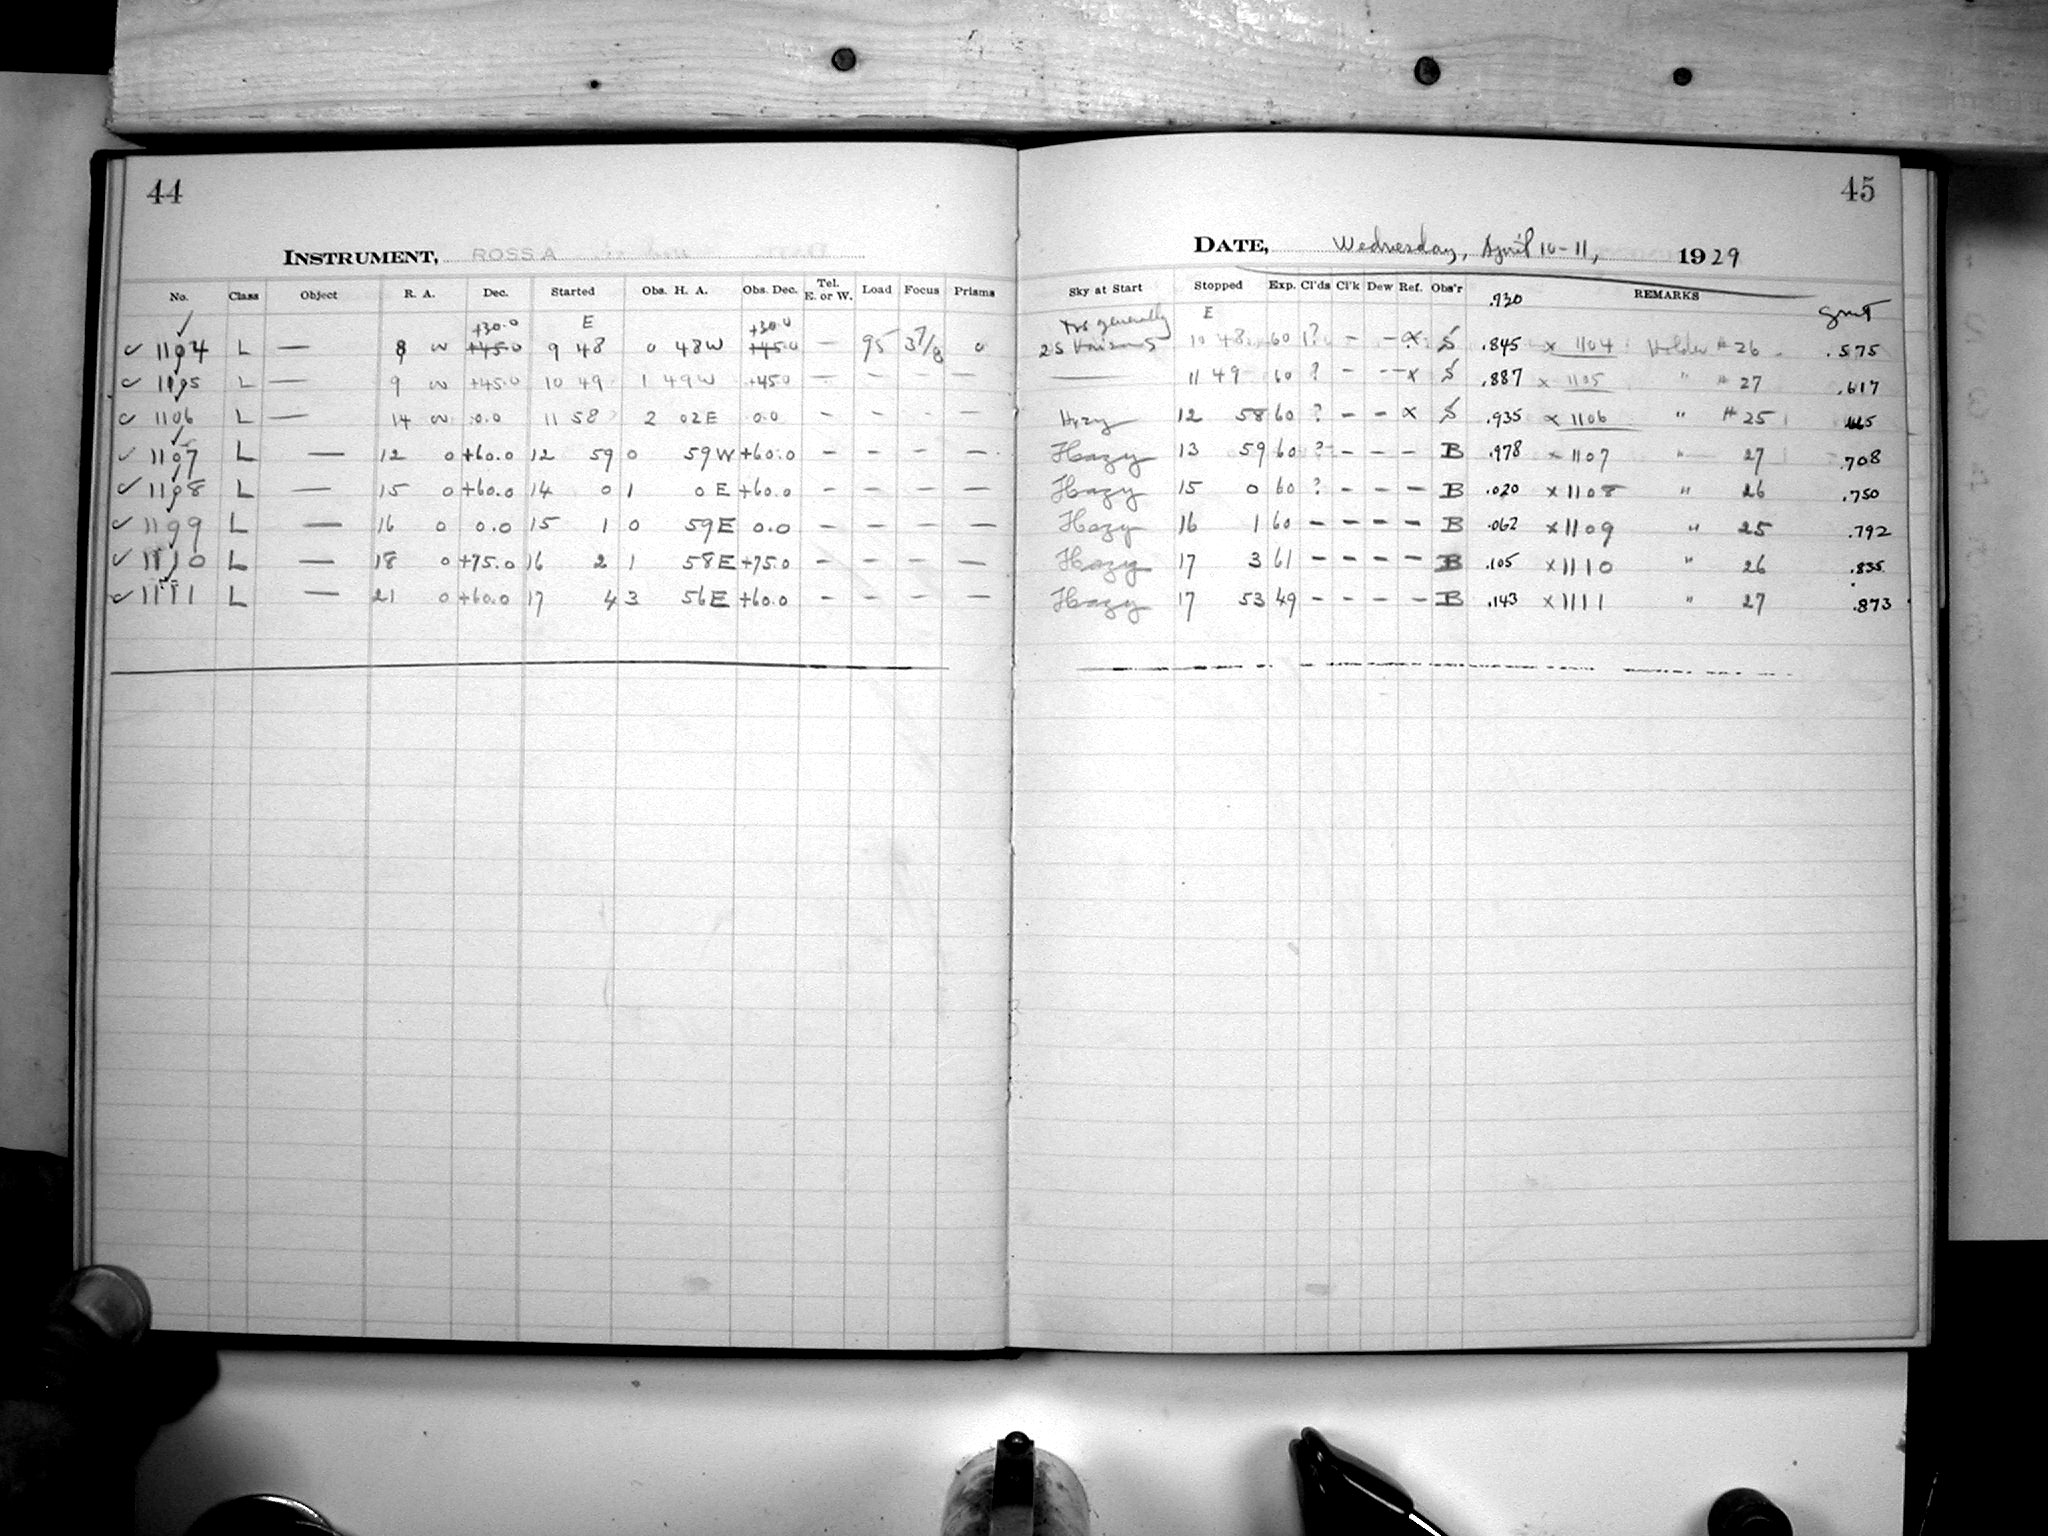 44
INSTRUMENT, ROSS A
No. Class Object R. A. Dec. Started Obs. H. A. Obs. Dec. Tel. E. or W. Load Focus Prisms
+30.0 E +30.0
✓ 1104 L — 8 w +45.0 9 48 0 48W +45.0 — 95 37/8 0
✓ 1105 L — 9 w +45.0 10 49 1 49W +45.0 — — — —
✓ 1106 L — 14 w 0.0 11 58 2 02E 0.0 - - - -
✓ 1107 L — 12 0 +60.0 12 59 0 59W +60.0 - - - -
✓ 1108 L — 15 0 +60.0 14 0 1 0E +60.0 - - - -
✓ 1109 L — 16 0 0.0 15 1 0 59E 0.0 - - - -
✓ 1110 L — 18 0 +75.0 16 2 1 58E +75.0 - - - -
✓ 1111 L — 21 0 +60.0 17 4 3 56E +60.0 - - - -
45
DATE, Wednesday, April 10-11, 1929
Sky at Start Stopped Exp. Cl'ds Cl'k Dew Ref. Obs'r REMARKS
.930
generally E Gmt
10 48 60 1? - - x S .845 x 1104 Holder #26 .575
— 11 49 60 ? - - x S .887 x 1105 " #27 .617
Hazy 12 58 60 ? - - x S .935 x 1106 " #25
Hazy 13 59 60 ? - - - B .978 x 1107 " 27 .708
Hazy 15 0 60 ? - - - B .020 x 1108 " 26 .750
Hazy 16 1 60 - - - - B .062 x 1109 " 25 .792
Hazy 17 3 61 - - - - B .105 x 1110 " 26 .835
Hazy 17 53 49 - - - - B .143 x 1111 " 27 .873